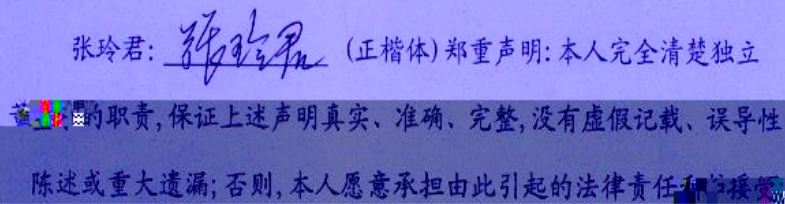 张玲君: 张玲君 (正楷体) 郑重声明: 本人完全清楚独立
的职责, 保证上述声明真实、准确、完整, 没有虚假记载、误导性
陈述或重大遗漏; 否则, 本人愿意承担由此引起的法律责任和接受